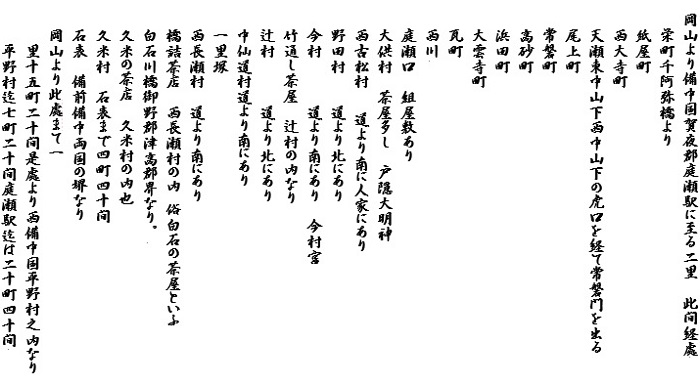 岡山より備中国賀夜郡庭瀬駅に至る二里　此間経處
栄町千阿弥橋より
紙屋町
西大寺町
天瀬東中山下西中山下の虎口を経て常磐門を出る
尾上町
常磐町
高砂町
浜田町
大雲寺町
瓦町
西川
庭瀬口　組屋敷あり
大供村　茶屋多し　戸隠大明神
西古松村　道より南に人家にあり
野田村　道より北にあり
今村　道より南にあり　今村宮
竹通し茶屋　辻村の内なり
辻村　道より北にあり
中仙道村道より南にあり
一里塚
西長瀬村　道より南にあり
橋詰茶店　西長瀬村の内　俗白石の茶屋といふ
白石川橋御野郡津高郡界なり。
久米の茶店　久米村の内也
久米村　石表まで四町四十間
石表　備前備中両国の堺なり
岡山より此處まて一
里十五町二十間是處より西備中国平野村之内なり
平野村迄七町二十間庭瀬駅迄は二十町四十間